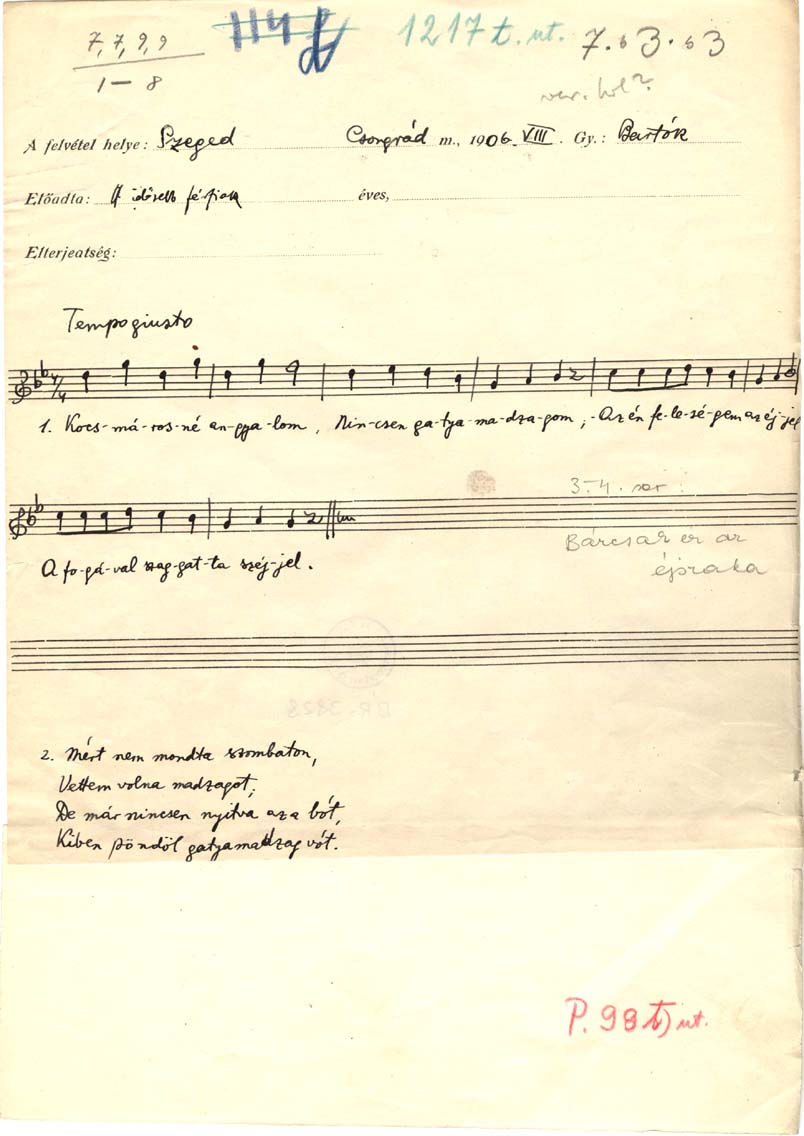 7, 7, 9, 9
1 — 8
1217 t. ut.
7. b3. b3
A felvétel helye: Szeged Csongrád m., 1906. VIII. Gy.: Bartók
Előadta: idősebb férfiak éves,
Elterjedtség:
Tempo giusto
1. Kocs-má-ros-né an-gya-lom, Nin-csen ga-tya-ma-dza-gom; Az én fe-le-sé-gem az éj-jel
3-4. sor:
Bárcsak ez az
éjszaka
A fo-gá-val szag-gat-ta széj-jel.
BR-3828
2. Mért nem mondta szombaton,
Vettem volna madzagot;
De már nincsen nyitva az a bót,
Kiben pöndöl gatyamadzag vót.
P. 98 t) ut.